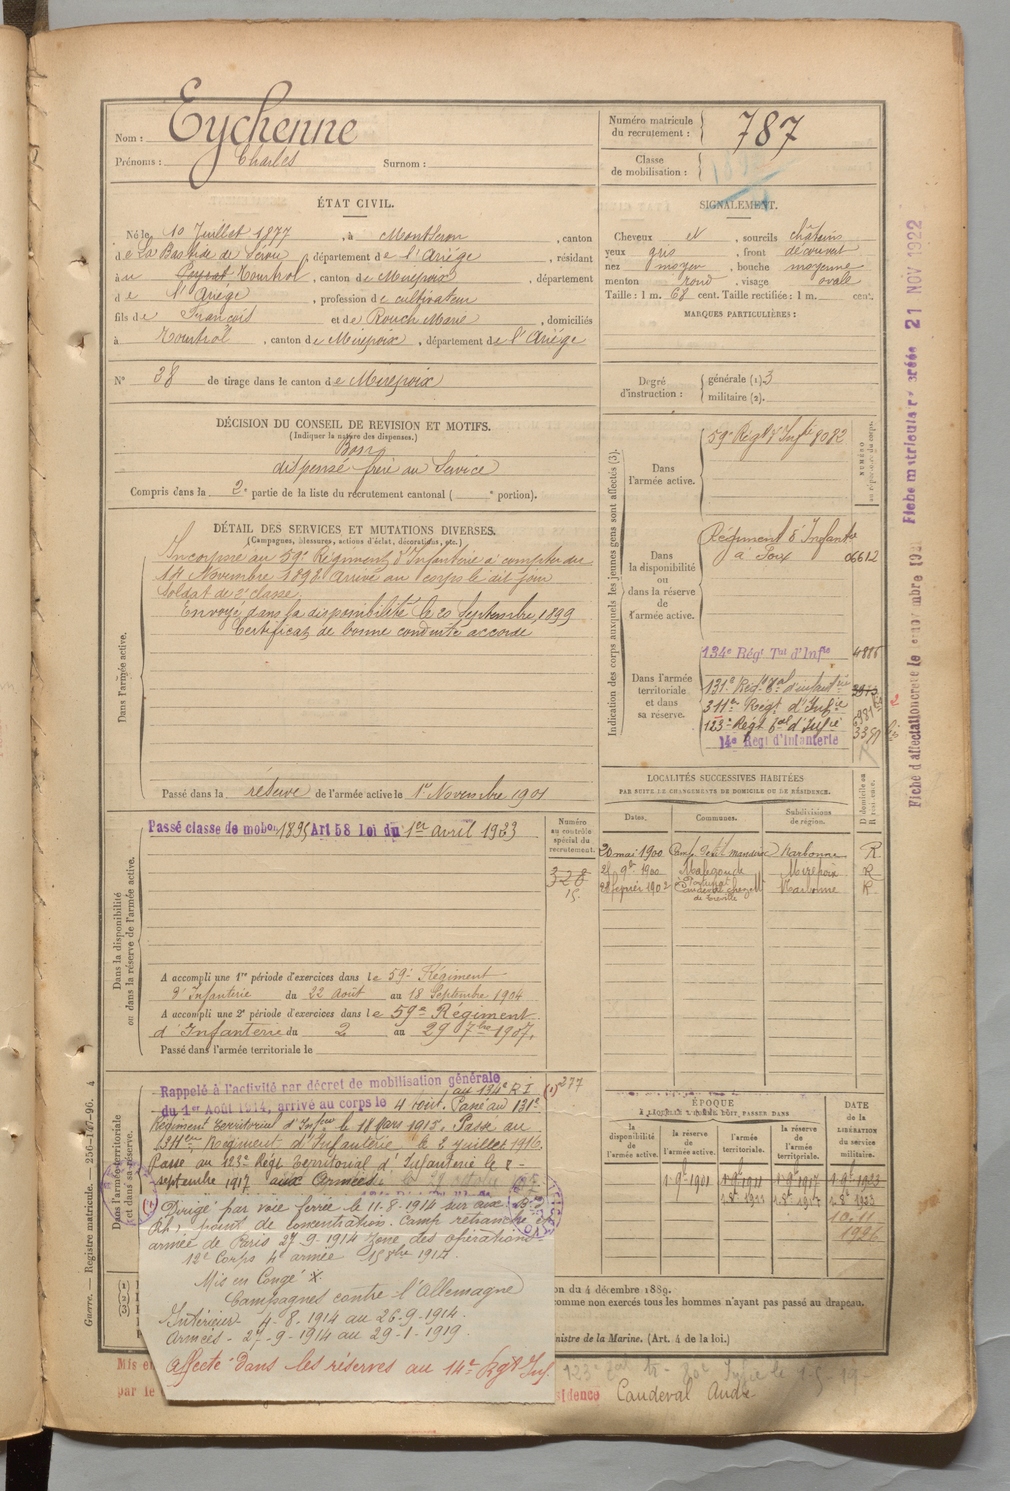 Nom : Eychenne
Prénoms : Charles Surnom :
Numéro matricule
du recrutement : 787
Classe
de mobilisation :
ÉTAT CIVIL.
Né le 10 Juillet 1877, à Montseron, canton
de La Bastide de Sérou, département de l'Ariége, résidant
à Tourtrol, canton de Mirepoix, département
de l'Ariége, profession de cultivateur
fils de François et de Rouch Marie, domiciliés
à Tourtrol, canton de Mirepoix, département de l'Ariége
N° 38 de tirage dans le canton de Mirepoix
SIGNALEMENT.
Cheveux et, sourcils châtains
yeux gris, front découvert
nez moyen, bouche moyenne
menton rond, visage ovale
Taille : 1 m. 68 cent. Taille rectifiée : 1 m. cent.
MARQUES PARTICULIÈRES :
Degré
d'instruction :
générale (1) 3
militaire (2).
DÉCISION DU CONSEIL DE REVISION ET MOTIFS.
(Indiquer la nature des dispenses.)
Bon
dispensé frère au Service
Compris dans la 2e partie de la liste du recrutement cantonal ( e portion).
DÉTAIL DES SERVICES ET MUTATIONS DIVERSES.
(Campagnes, blessures, actions d'éclat, décorations, etc.)
Dans l'armée active.
Incorporé au 59e Régiment d'Infanterie à compter du
14 Novembre 1898 arrivé au corps le dit jour
Soldat de 2e classe.
Envoyé dans la disponibilité le 20 Septembre 1899
Certificat de bonne conduite accordé
Passé dans la réserve de l'armée active le 1er Novembre 1901
Indication des corps auxquels les jeunes gens sont affectés (3).
Dans
l'armée active.
59e Régt d'Infie 8082
NUMÉRO
au répertoire du corps.
Dans
la disponibilité
ou
dans la réserve
de
l'armée active.
Régiment d'Infanterie
à Foix 06612
Dans l'armée
territoriale
et dans
sa réserve.
134e Régt Tal d'Infie 4816
131e Régt Tal d'infanterie
311e Régt d'Infie
123e Régt Tal d'Infie
14e Regt d'Infanterie
Dans la disponibilité
ou dans la réserve de l'armée active.
Passé classe de mobon 1895 Art 58 loi du 1er avril 1923
Numéro
au contrôle
spécial du
recrutement.
328
15
A accompli une 1re période d'exercices dans le 59e Régiment
d'Infanterie du 22 Août au 18 Septembre 1904
A accompli une 2e période d'exercices dans le 59e Régiment
d'Infanterie du 2 au 29 7bre 1907.
Passé dans l'armée territoriale le
LOCALITÉS SUCCESSIVES HABITÉES
PAR SUITE DE CHANGEMENTS DE DOMICILE OU DE RÉSIDENCE.
Dates. Communes. Subdivisions
de région.
D domicile ou
R résidence.
20 mai 1900 Narbonne R
9bre 1900 Malegoude Mirepoix R
février 1902 Caudeval Narbonne R
Dans l'armée territoriale
et dans sa réserve.
Rappelé à l'activité par décret de mobilisation générale
du 1er Août 1914, arrivé au corps le 4 août. au 134e R I (1) 277
Passé au 131e
Régiment territorial d'Infie le 18 Mars 1915. Passé au
311e Régiment d'Infanterie le 2 juillet 1916.
Passé au 123e Régt Territorial d'Infanterie le 8
septembre 1917 aux Armées
Dirigé par voie ferrée le 11.8.1914 sur
point de concentration. Camp retranché
armée de Paris 27.9.1914 Zone des opérations
12e Corps 4e armée
Mis en Congé
Campagnes contre l'Allemagne
Intérieur 4-8-1914 au 26-9-1914.
Armées - 27-9-1914 au 29-1-1919.
Affecté dans les réserves au 14e Rgt Inf.
ÉPOQUE
À LAQUELLE L'HOMME DOIT PASSER DANS
la
disponibilité
de
l'armée active.
la réserve
de
l'armée active.
l'armée
territoriale.
la réserve
de
l'armée
territoriale.
DATE
de la
LIBÉRATION
du service
militaire.
1 9bre 1901 1 9bre 1911 1 9bre 1917 1 9bre 1923
10.11
1926
on du 4 décembre 1889.
comme non exercés tous les hommes n'ayant pas passé au drapeau.
nistre de la Marine. (Art. 4 de la loi.)
Mis e
par le
sidence Caudeval Aude
Guerre. — Registre matricule. — 256-147-96. 4
Fiche matricule créée 21 NOV 1922